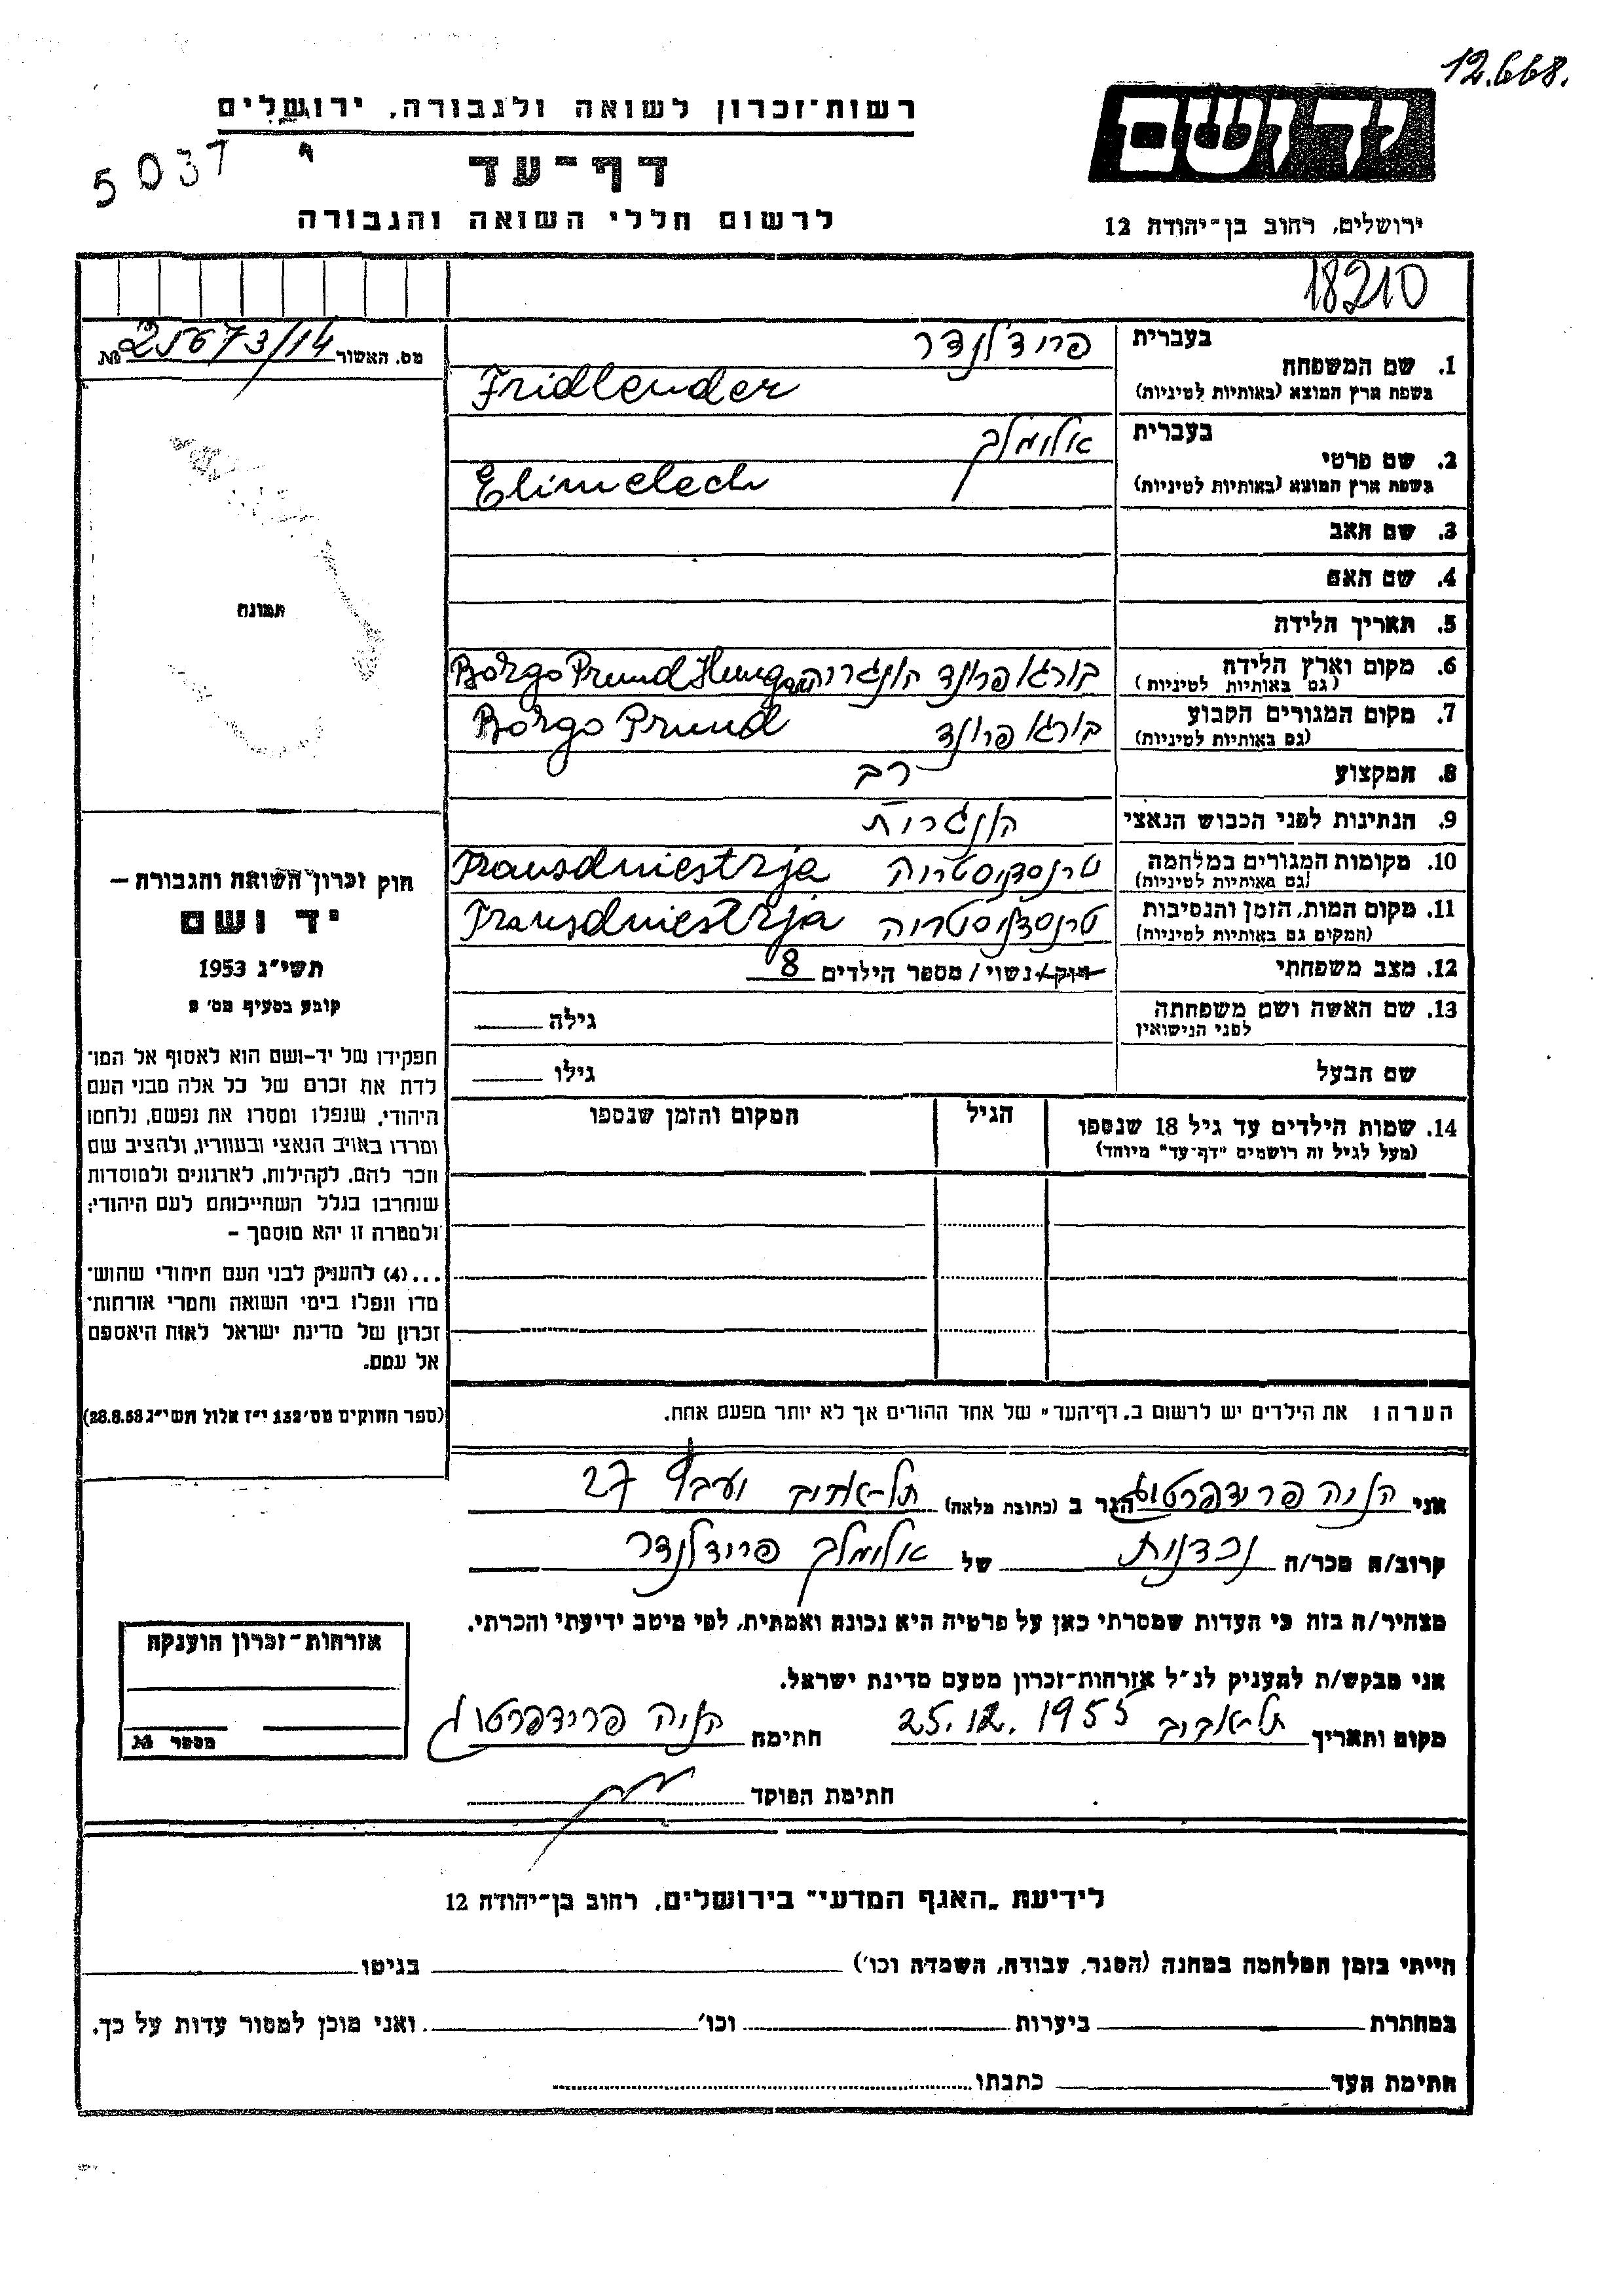 12.668.
רשות-זכרון לשואה ולגבורה, ירושלים
יד ושם
5037 י
דף-עד
לרשום חללי השואה והגבורה
ירושלים, רחוב בן-יהודה 12
18210
מס. האשור 25673/14 №
תמונה
חוק זכרון השואה והגבורה —
יד ושם
תשי"ג 1953
קובע בסעיף מס' 2
תפקידו של יד-ושם הוא לאסוף אל המו־
לדת את זכרם של כל אלה מבני העם
היהודי, שנפלו ומסרו את נפשם, נלחמו
ומרדו באויב הנאצי ובעוזריו, ולהציב שם
וזכר להם, לקהילות, לארגונים ולמוסדות
שנחרבו בגלל השתייכותם לעם היהודי;
ולמטרה זו יהא מוסמך —
...(4) להעניק לבני העם היהודי שהוש־
מדו ונפלו בימי השואה והמרי אזרחות־
זכרון של מדינת ישראל לאות היאספם
אל עמם.
(ספר החוקים מס' 132 י"ז אלול תשי"ג 28.8.53)
בעברית פרידלנדר
1. שם המשפחה
בשפת ארץ המוצא (באותיות לטיניות) Fridlender
בעברית אלימלך
2. שם פרטי
בשפת ארץ המוצא (באותיות לטיניות) Elimelech
3. שם האב
4. שם האם
5. תאריך הלידה
6. מקום וארץ הלידה בורגו פרונד הונגריה Borgo Prund
(גם באותיות לטיניות)
7. מקום המגורים הקבוע בורגו פרונד Borgo Prund
(גם באותיות לטיניות)
8. המקצוע רב
9. הנתינות לפני הכבוש הנאצי הונגרית
10. מקומות המגורים במלחמה טרנסדניסטריה Transdniestrja
(גם באותיות לטיניות)
11. מקום המות, הזמן והנסיבות טרנסדניסטריה Transdniestrja
(המקום גם באותיות לטיניות)
12. מצב משפחתי רווק/נשוי / מספר הילדים 8
13. שם האשה ושם משפחתה גילה
לפני הנישואין
שם הבעל גילו
14. שמות הילדים עד גיל 18 שנספו הגיל המקום והזמן שנספו
(מעל לגיל זה רושמים "דף-עד" מיוחד)
הערה: את הילדים יש לרשום ב„דף-העד" של אחד ההורים אך לא יותר מפעם אחת.
אני הניה פרידפרטיג הגר ב (כתובת מלאה) תל-אביב 27
קרוב/ה מכר/ה נכדנית של אלימלך פרידלנדר
מצהיר/ה בזה כי העדות שמסרתי כאן על פרטיה היא נכונה ואמתית, לפי מיטב ידיעתי והכרתי.
אני מבקש/ת להעניק לנ"ל אזרחות-זכרון מטעם מדינת ישראל.
מקום ותאריך תל-אביב 25.12.1955 חתימה הניה פרידפרטיג
חתימת הפוקד
אזרחות-זכרון הוענקה
מספר №
לידיעת „האגף המדעי" בירושלים, רחוב בן-יהודה 12
הייתי בזמן המלחמה במחנה (הסגר, עבודה, השמדה וכו') בגיטו
במחתרת ביערות וכו' ואני מוכן למסור עדות על כך.
חתימת העד כתבתו